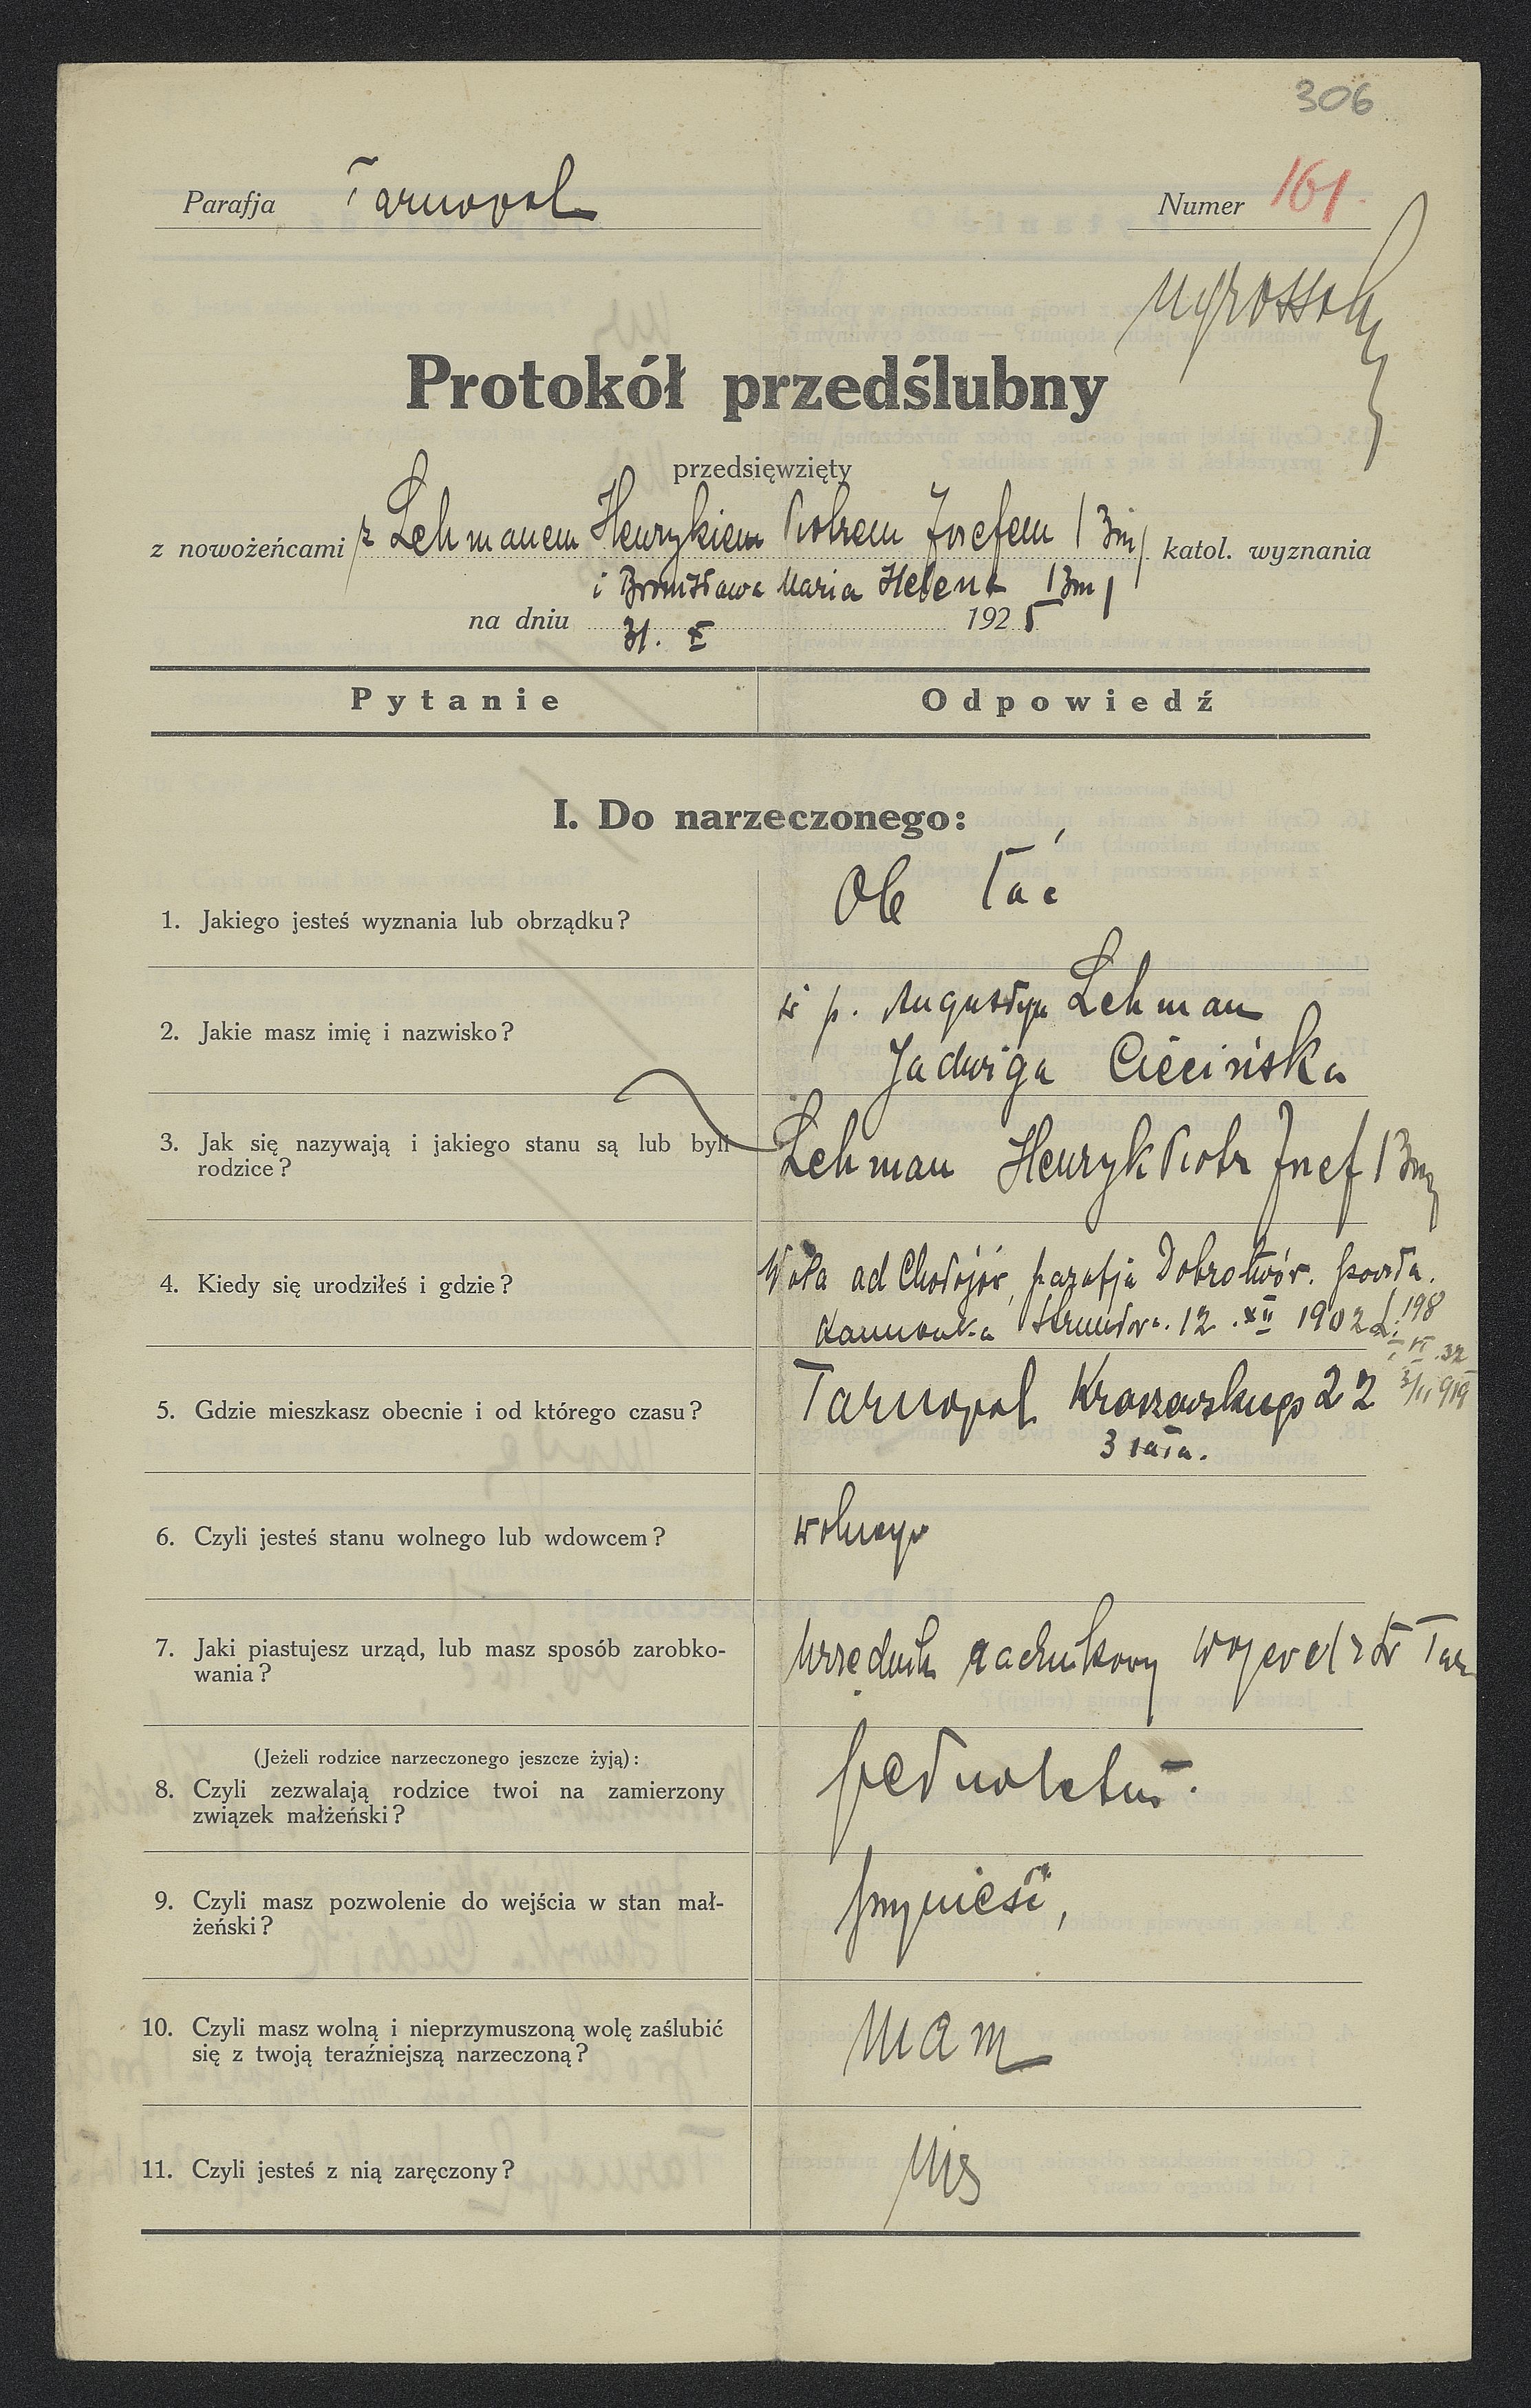 306
Parafja Tarnopol
Numer 161.
Protokół przedślubny
przedsięwzięty
z nowożeńcami z Lehmanem Henrykiem Piotrem Józefem / 3im / katol. wyznania
i Bronisława Maria Helena / 3im /
na dniu 31. X 1925
Pytanie Odpowiedź
I. Do narzeczonego:
1. Jakiego jesteś wyznania lub obrządku? Ob łać
2. Jakie masz imię i nazwisko? ś p. Augustyn Lehman
Jadwiga Ciecińska
3. Jak się nazywają i jakiego stanu są lub byli Lehman Henryk Piotr Józef / 3im
rodzice?
4. Kiedy się urodziłeś i gdzie? Wola ad Chołojów, parafja Dobrotwór.
Kamionka 12. XII 1902
5. Gdzie mieszkasz obecnie i od którego czasu? Tarnopol Kraszewskiego 22
3 lata.
6. Czyli jesteś stanu wolnego lub wdowcem? wolnego
7. Jaki piastujesz urząd, lub masz sposób zarobko- Urzędnik rachunkowy
wania?
(Jeżeli rodzice narzeczonego jeszcze żyją):
8. Czyli zezwalają rodzice twoi na zamierzony pełnoletni.
związek małżeński?
9. Czyli masz pozwolenie do wejścia w stan mał- przynieść,
żeński?
10. Czyli masz wolną i nieprzymuszoną wolę zaślubić mam
się z twoją teraźniejszą narzeczoną?
11. Czyli jesteś z nią zaręczony?